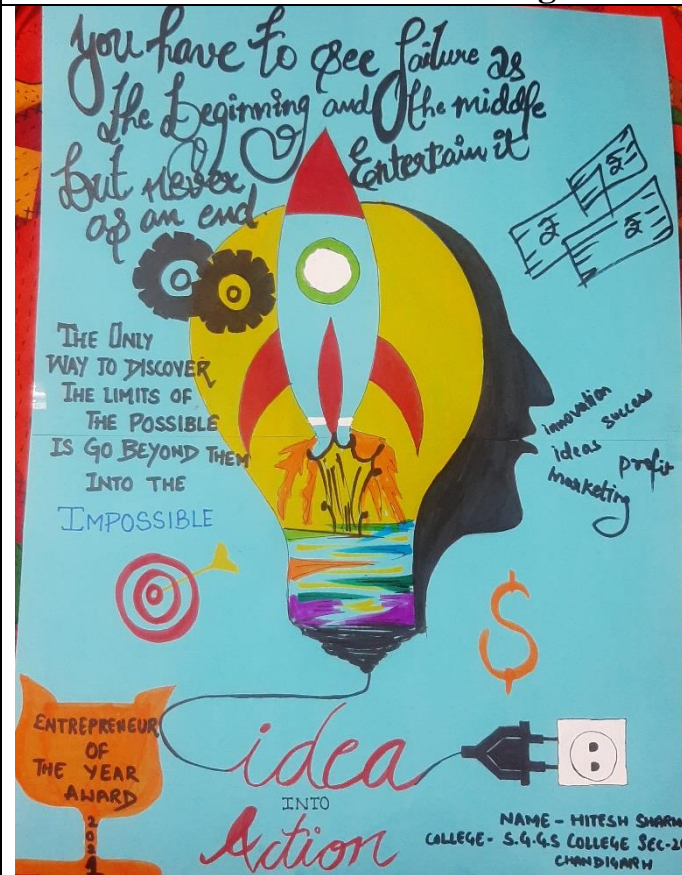 you have to see failure as
the Beginning and the middle
but never Entertain it
as an end.
THE ONLY
WAY TO DISCOVER
THE LIMITS OF
THE POSSIBLE
IS GO BEYOND THEM
INTO THE
IMPOSSIBLE
innovation
success
ideas
profit
marketing
$
ENTREPRENEUR
OF
THE YEAR
AWARD
idea
INTO
Action
NAME - HITESH SHARM
COLLEGE - S.G.G.S COLLEGE SEC-2
CHANDIGARH